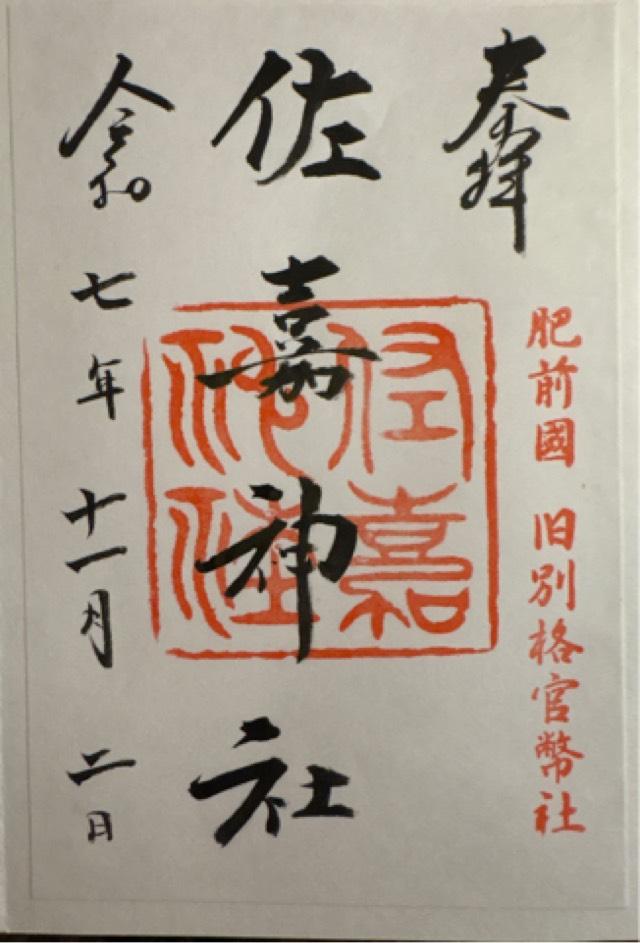 奉拝
肥前國 旧別格官幣社
佐嘉神社
佐嘉神社
令和七年十一月二日